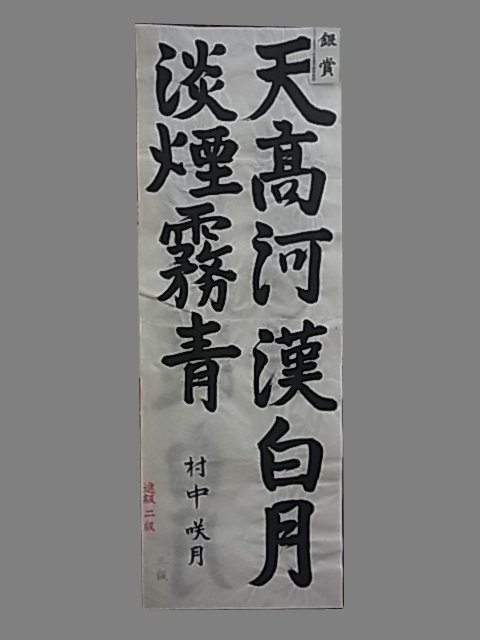 銀賞
天髙河漢白月
淡煙霧青
村中咲月
進級二級
三級